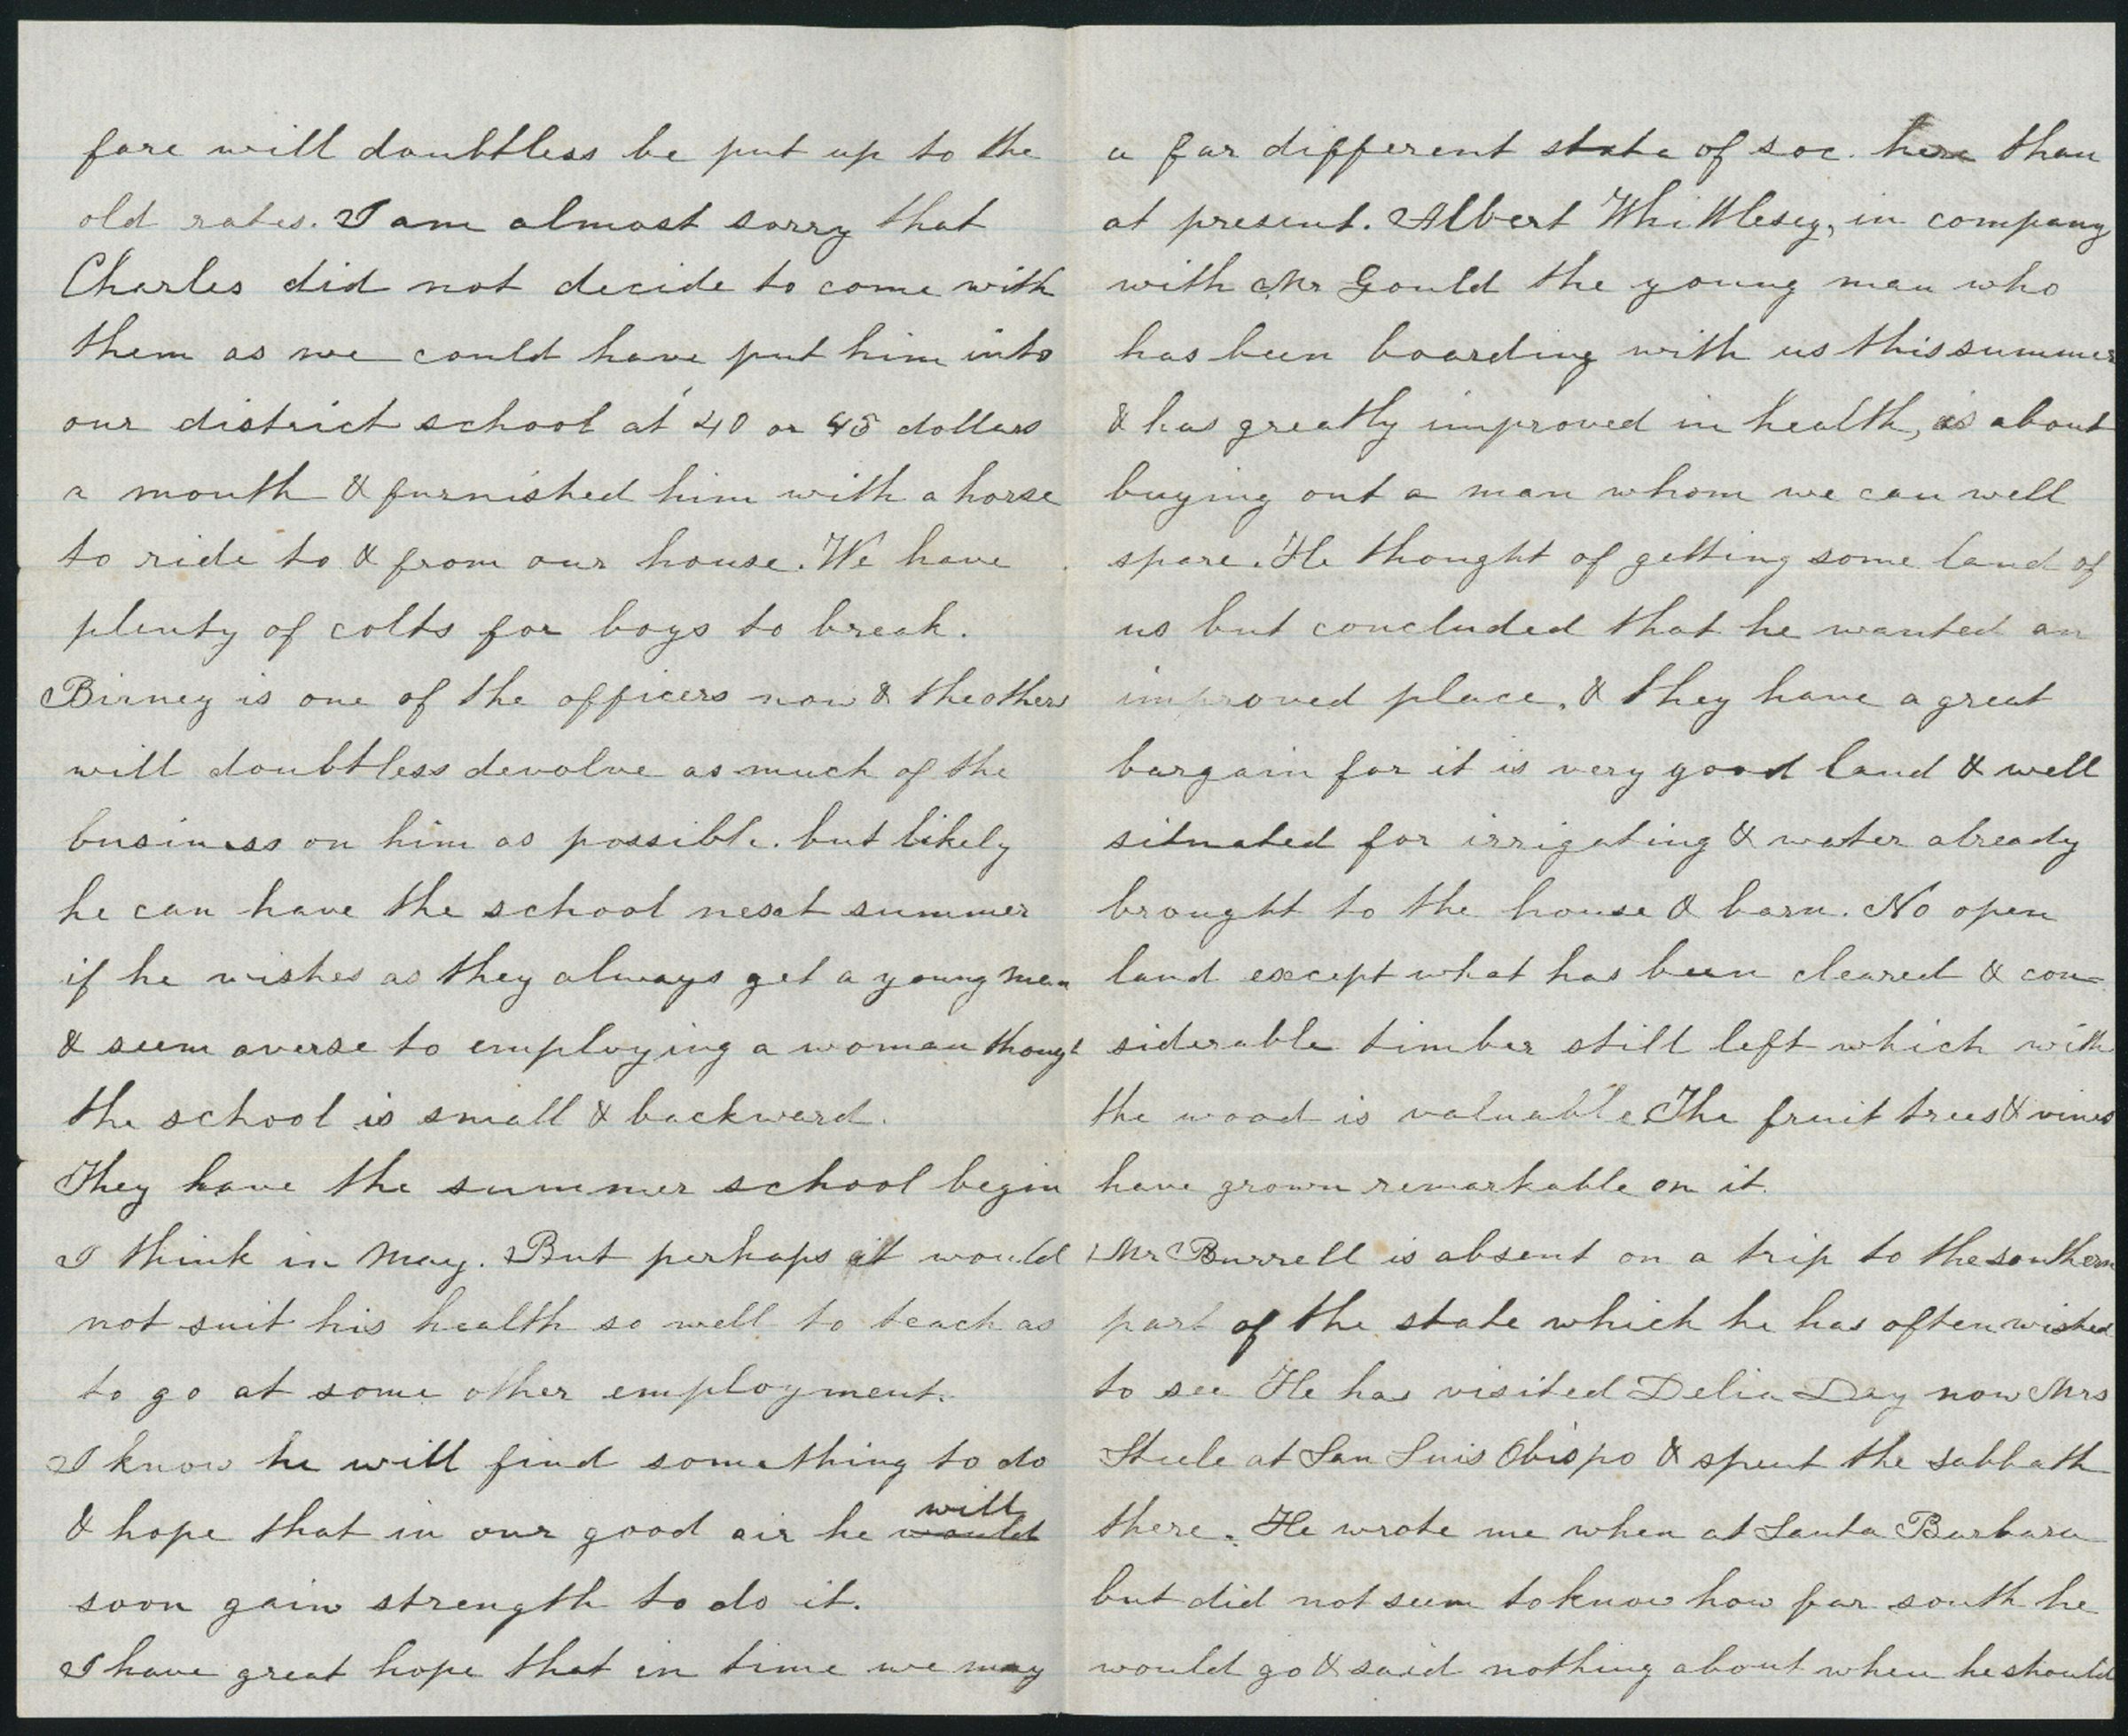 fare will doubtless be put up to the
old rates. I am almost sorry that
Charles did not decide to come with
them as we could have put him into
our district school at 40 or 45 dollars
a month & furnished him with a horse
to ride to & from our house. We have
plenty of colts for boys to break.
Birney is one of the officers now & the others
will doubtless devolve as much of the
business on him as possible. but likely
he can have the school next summer
if he wishes as they always get a young man
& seem averse to employing a woman though
the school is small & backward.
They have the summer school begin
I think in May. But perhaps it would
not suit his health so well to teach as
to go at some other employment.
I know he will find something to do
& hope that in our good air he would will
soon gain strength to do it.
I have great hope that in time we may
a far different state of soc. here than
at present. Albert Whittlesey, in company
with Mr Gould the young man who
has been boarding with us this summer
& has greatly improved in health, is about
buying out a man whom we can well
spare. He thought of getting some land of
us but concluded that he wanted an
improved place, & they have a great
bargain for it is very good land & well
situated for irrigating & water already
brought to the house & barn. No open
land except what has been cleared & con-
siderable timber still left which with
the wood is valuable The fruit trees & vines
have grown remarkable on it.
Mr Burrell is absent on a trip to the southern
part of the state which he has often wished
to see He has visited Delia Day now Mrs
Steele at San Luis Obispo & spent the sabbath
there. He wrote me when at Santa Barbara
but did not seem to know how far south he
would go & said nothing about when he should